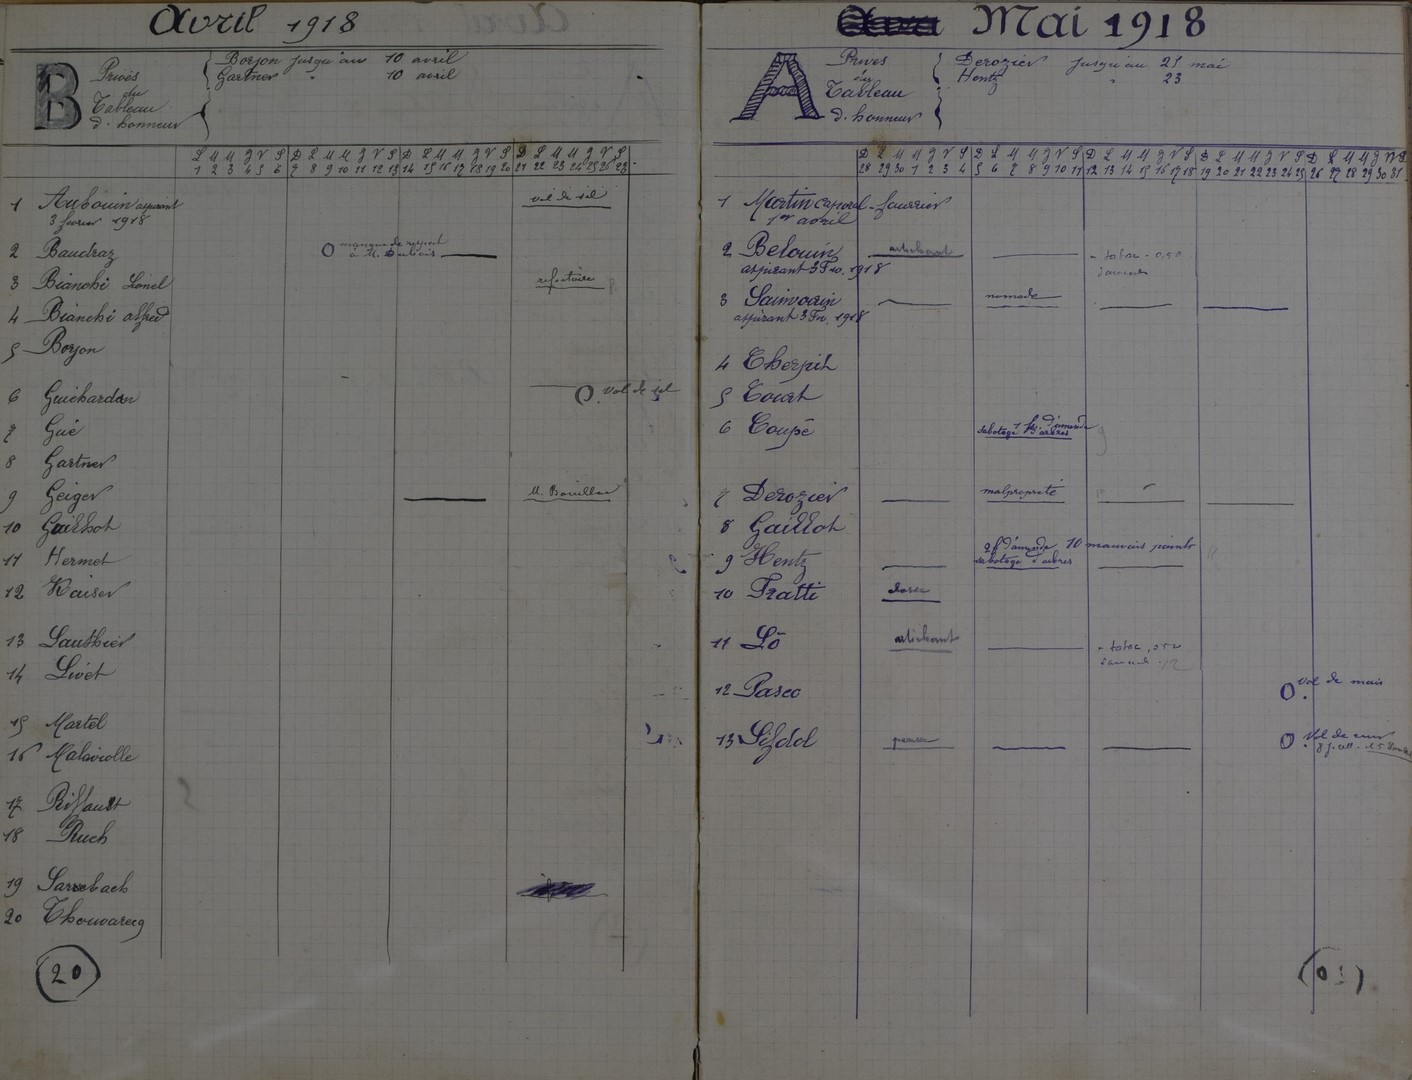 Avril 1918
B Privés du Tableau d'honneur
Borjon jusqu'au 10 avril
Gartner " 10 avril
L M M J V S D L M M J V S D L M M J V S D L M M J V S
1 2 3 4 5 6 7 8 9 10 11 12 13 14 15 16 17 18 19 20 21 22 23 24 25 26
1 Aubouin aspirant vol de sel
3 février 1918
2 Baudraz O manque de respect
à M. Dubois
3 Bianchi Lionel réfectoire
4 Bianchi alfred
5 Borjon
6 Guichardan O vol de sel
7 Gué
8 Gartner
9 Geiger
10 Guilhot
11 Hermet
12 Kaiser
13 Lauthier
14 Livet
15 Martel
16 Malaviolle
17 Riffault
18 Ruch
19 Sarrebach
20 Thouvarecq
20
Mai 1918
A Privés du Tableau d'honneur
Derozier jusqu'au 25 mai
Hentz " 23
D L M M J V S D L M M J V S D L M M J V S D L M M J V S D L M M J V
28 29 30 1 2 3 4 5 6 7 8 9 10 11 12 13 14 15 16 17 18 19 20 21 22 23 24 25 26 27 28 29 30 31
1 Martin caporal-fourrier
1er avril
2 Belouin artichaut - tabac - 0,50
aspirant 3 Fév. 1918
3 Sainvoirin nomade
aspirant 3 Fév. 1918
4 Cherpit
5 Court
6 Coupé 1 fr. d'amende
sabotage d'arbres
7 Derozier malpropreté
8 Gaillot
9 Hentz 2f d'amende 10 mauvais points
sabotage d'arbres
10 Fratti
11 Lô artichaut - tabac
12 Pasco O vol de maïs
13 O Vol de